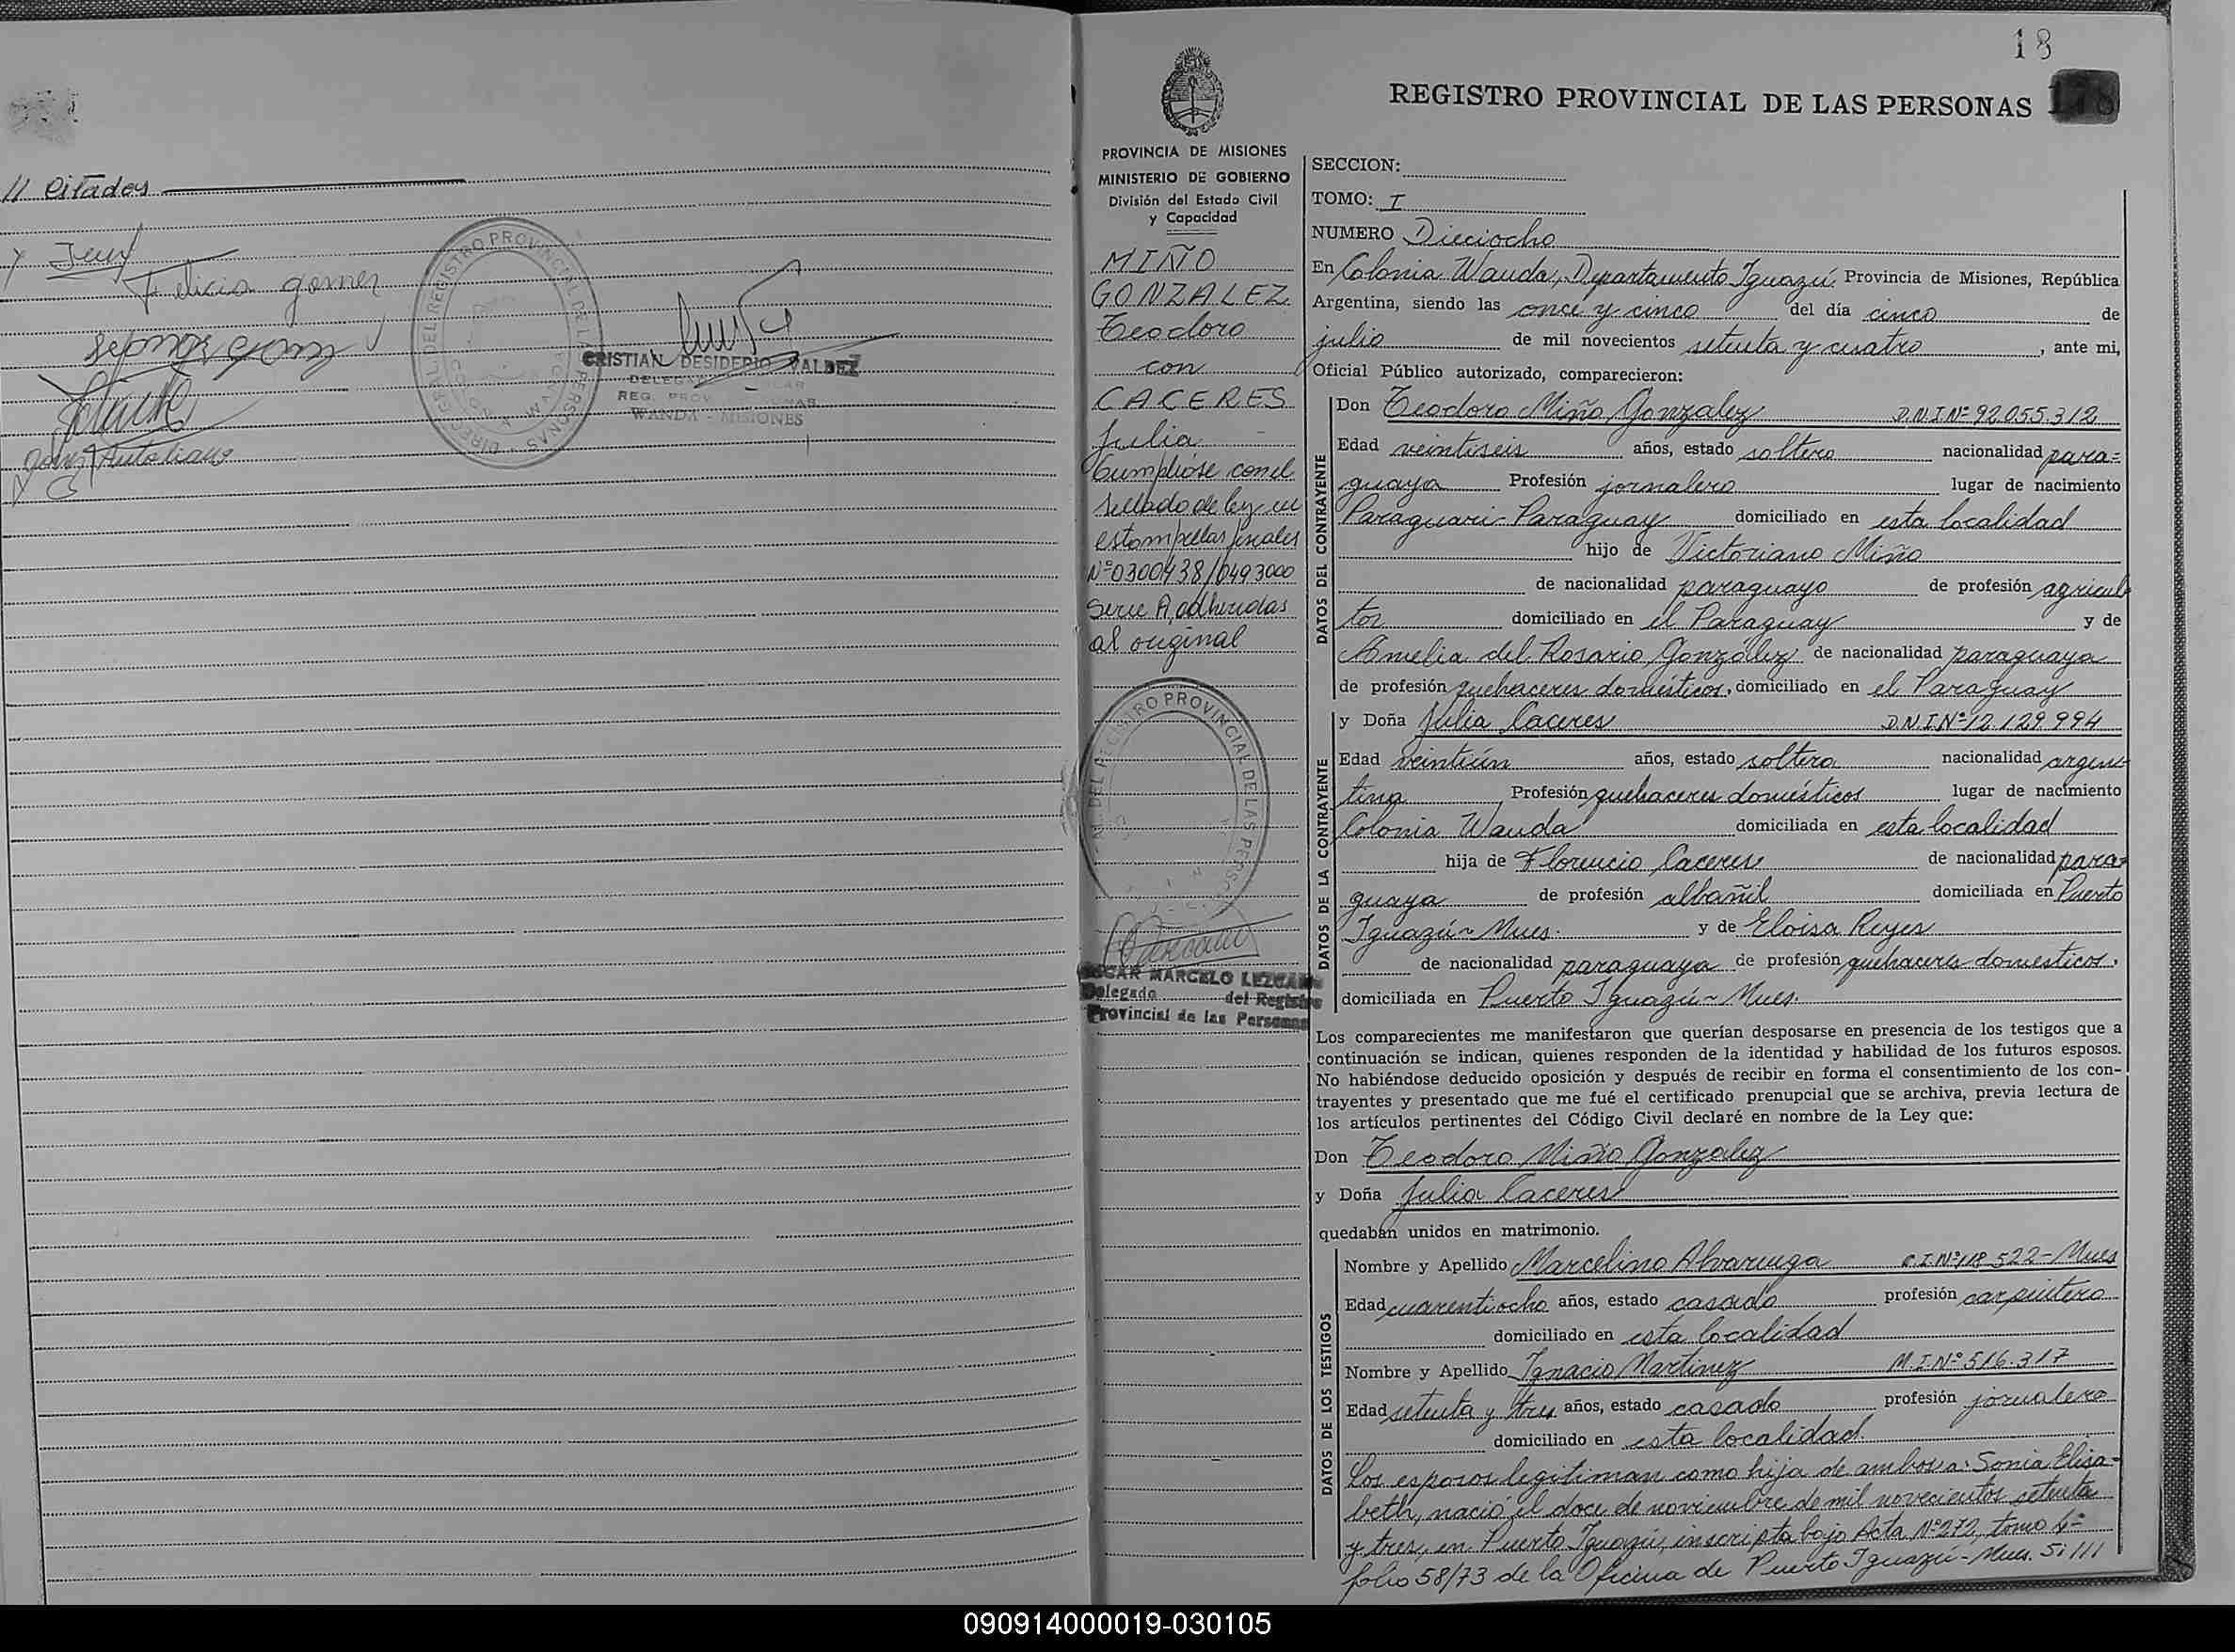 // citados
Felicia gomez
DIREC. GRAL DEL REGISTRO PROVINCIAL DE LAS PERSONAS
CRISTIAN DESIDERIO VALDEZ
REG. PROV.
WANDA - MISIONES
18
REGISTRO PROVINCIAL DE LAS PERSONAS
PROVINCIA DE MISIONES
MINISTERIO DE GOBIERNO
División del Estado Civil
y Capacidad
MIÑO
GONZALEZ
Teodoro
con
CACERES
Julia
Cumplióse con el
sellado de ley en
estampillas fiscales
Nº 0300438/0493000
Serie A, adheridas
al original
REGISTRO PROVINCIAL DE LAS PERSO
OSCAR MARCELO LEZCANO
Delegado del Registro
Provincial de las Personas
SECCION:
TOMO: I
NUMERO Dieciocho
En Colonia Wanda, Departamento Iguazú, Provincia de Misiones, República
Argentina, siendo las once y cinco del día cinco de
julio de mil novecientos setenta y cuatro, ante mi,
Oficial Público autorizado, comparecieron:
DATOS DEL CONTRAYENTE
Don Teodoro Miño Gonzalez D.N.I Nº 92.055.312
Edad veintiseis años, estado soltero nacionalidad para=
guaya Profesión jornalero lugar de nacimiento
Paraguari-Paraguay domiciliado en esta localidad
hijo de Victoriano Miño
de nacionalidad paraguayo de profesión agricul
tor domiciliado en el Paraguay y de
Amelia del Rosario González de nacionalidad paraguaya
de profesión quehaceres domésticos, domiciliado en el Paraguay
DATOS DE LA CONTRAYENTE
y Doña Julia Caceres D.N.I Nº 12.129.994
Edad veintiún años, estado soltera nacionalidad argen-
tina Profesión quehaceres domésticos lugar de nacimiento
Colonia Wanda domiciliada en esta localidad
hija de Florencio Caceres de nacionalidad para-
guaya de profesión albañil domiciliada en Puerto
Iguazú-Mnes. y de Eloisa Reyes
de nacionalidad paraguaya de profesión quehaceres domesticos,
domiciliada en Puerto Iguazú-Mnes.
Los comparecientes me manifestaron que querían desposarse en presencia de los testigos que a
continuación se indican, quienes responden de la identidad y habilidad de los futuros esposos.
No habiéndose deducido oposición y después de recibir en forma el consentimiento de los con-
trayentes y presentado que me fué el certificado prenupcial que se archiva, previa lectura de
los artículos pertinentes del Código Civil declaré en nombre de la Ley que:
Don Teodoro Miño Gonzalez
y Doña Julia Caceres
quedabán unidos en matrimonio.
DATOS DE LOS TESTIGOS
Nombre y Apellido Marcelino Alvarenga C.I.Nº 118.522-Mnes
Edad cuarentiocho años, estado casado profesión carpintero
domiciliado en esta localidad
Nombre y Apellido Ignacio Martinez M.I.Nº 516.317
Edad setenta y tres años, estado casado profesión jornalero
domiciliado en esta localidad.
Los esposos legitiman como hija de ambos a: Sonia Elisa-
beth, nació el doce de noviembre de mil novecientos setenta
y tres, en Puerto Iguazú, inscripta bajo Acta Nº 272, tomo 4º
folio 58/73 de la Oficina de Puerto Iguazú-Mnes. Si///
090914000019-030105